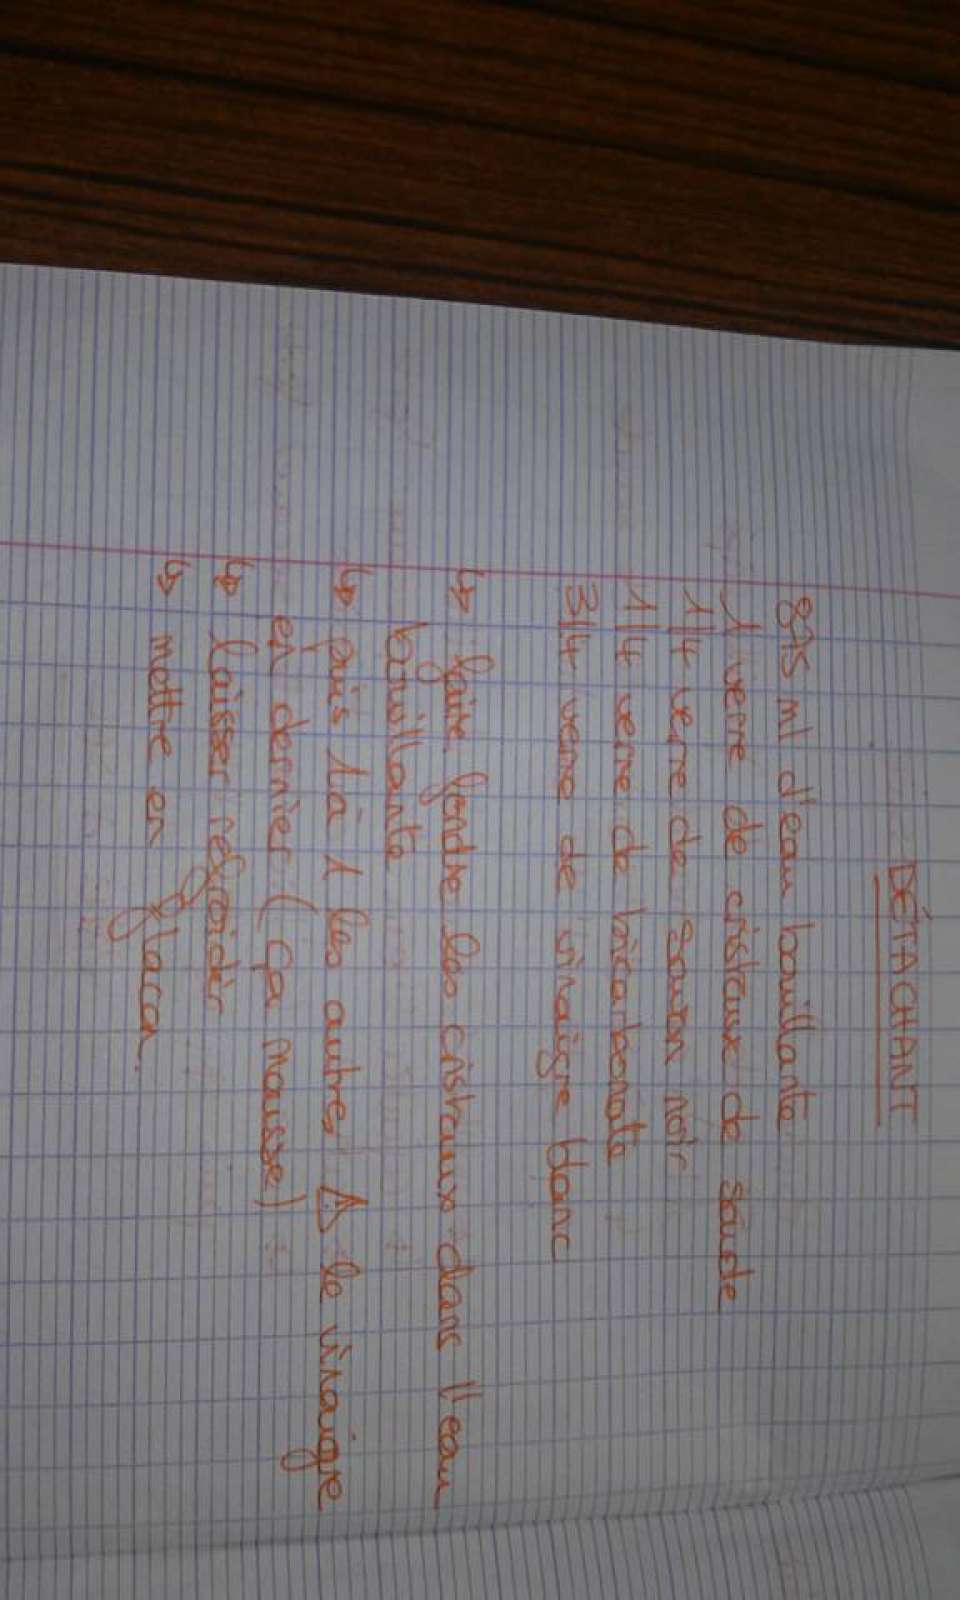 DÉTACHANT
875 ml d'eau bouillante
1 verre de cristaux de soude
1/4 verre de savon noir
1/4 verre de bicarbonate
3/4 verre de vinaigre blanc
↳ faire fondre les cristaux dans l'eau
bouillante
↳ puis 1 à 1 les autres ⚠ le vinaigre
en dernier (ça mousse)
↳ laisser refroidir
↳ mettre en flacon.